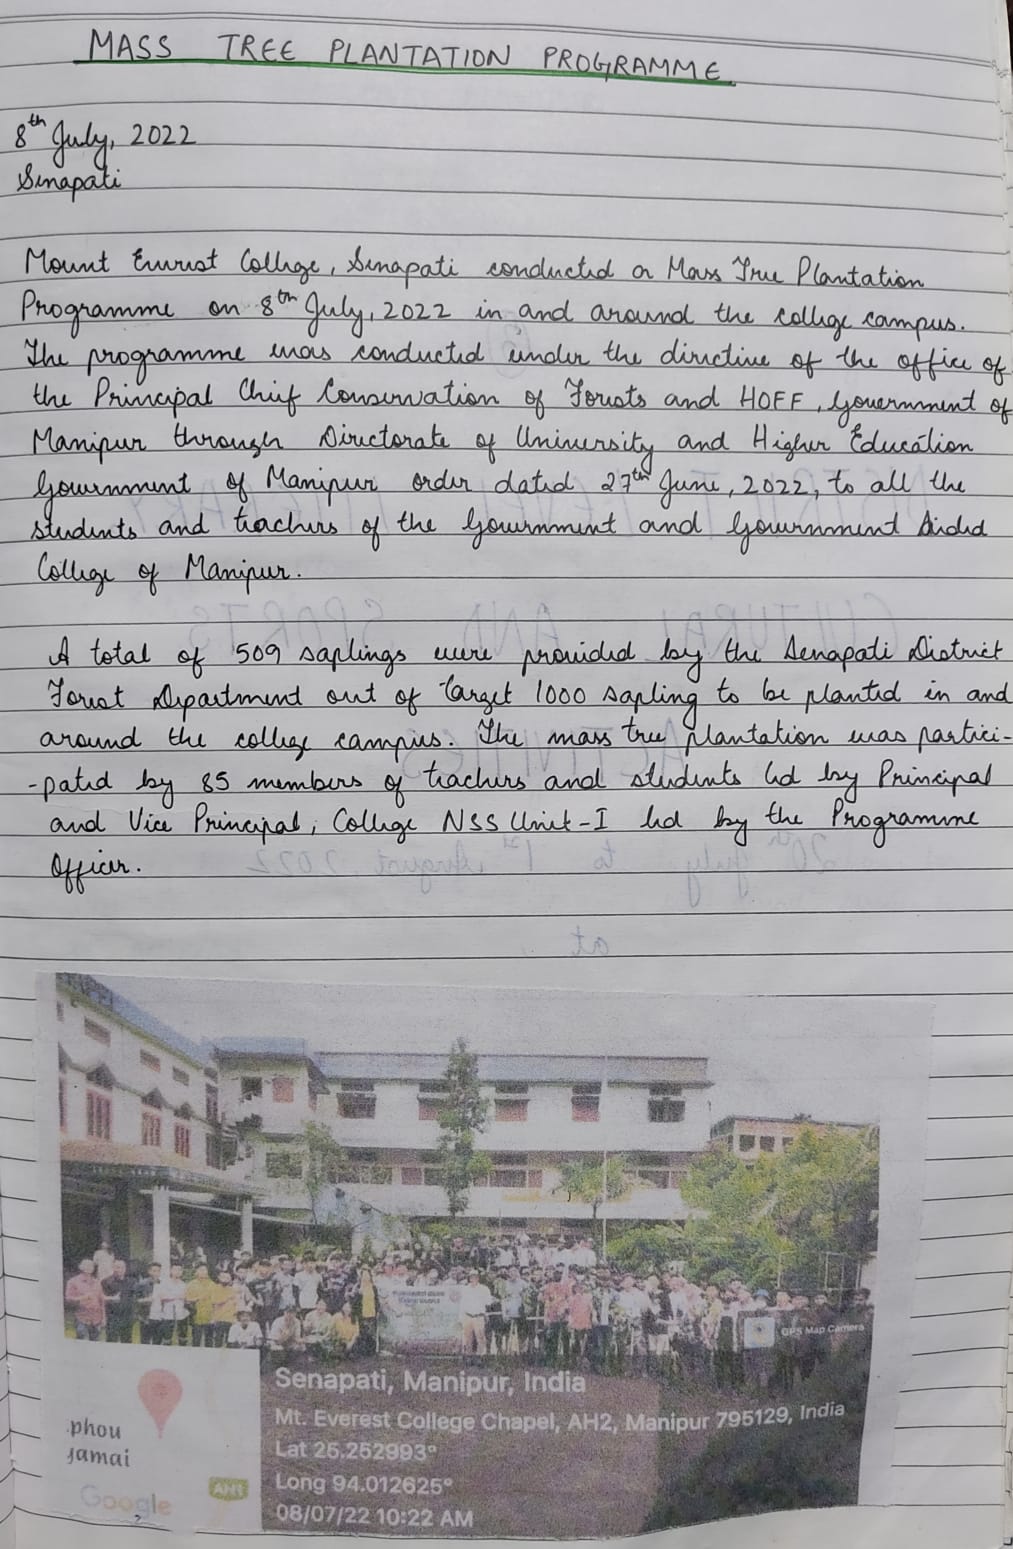 MASS TREE PLANTATION PROGRAMME
8th July, 2022
Senapati
Mount Everest College, Senapati conducted a Mass Tree Plantation
Programme on 8th July, 2022 in and around the college campus.
The programme was conducted under the directive of the office of
the Principal Chief Conservation of Forests and HOFF, Government of
Manipur through Directorate of University and Higher Education
Government of Manipur order dated 27th June, 2022, to all the
students and teachers of the Government and Government Aided
College of Manipur.
A total of 509 saplings were provided by the Senapati District
Forest Department out of target 1000 sapling to be planted in and
around the college campus. The mass tree plantation was partici-
-pated by 85 members of teachers and students led by Principal
and Vice Principal, College NSS Unit-I led by the Programme
Officer.
GPS Map Camera
Senapati, Manipur, India
Mt. Everest College Chapel, AH2, Manipur 795129, India
Lat 25.252993°
Long 94.012625°
08/07/22 10:22 AM
phou
jamai
Google
AH1